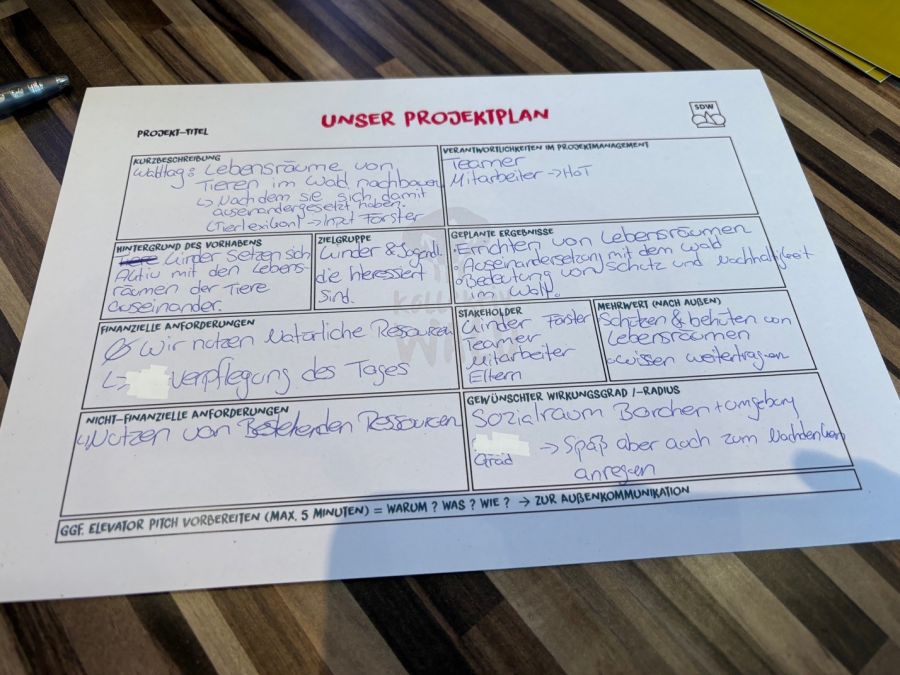 UNSER PROJEKTPLAN
SDW
PROJEKT-TITEL
KURZBESCHREIBUNG
Waldtag: Lebensräume von
Tieren im Wald nachbauen
↳ Nachdem sie sich damit
auseinandergesetzt haben.
(Tierlexikon) → Input Förster
VERANTWORTLICHKEITEN IM PROJEKTMANAGEMENT
Teamer
Mitarbeiter → HoT
HINTERGRUND DES VORHABENS
Kinder setzen sich
Aktiv mit den Lebens-
räumen der Tiere
auseinander.
ZIELGRUPPE
Kinder & Jugendl.
die
sind.
GEPLANTE ERGEBNISSE
Errichten von Lebensräumen
• Auseinandersetzung mit dem Wald
• Bedeutung von Schutz und Nachhaltigkeit
im Wald.
FINANZIELLE ANFORDERUNGEN
Ø Wir nutzen Natürliche Ressourcen
↳ Verpflegung des Tages
STAKEHOLDER
Kinder Förster
Teamer
Mitarbeiter
Eltern
MEHRWERT (NACH AUßEN)
Schützen & behüten von
Lebensräumen
wissen weitertragen
NICHT-FINANZIELLE ANFORDERUNGEN
↳ Nutzen von Bestehenden Ressourcen
GEWÜNSCHTER WIRKUNGSGRAD /-RADIUS
Sozialraum Borchen + umgebung
Grad → Spaß aber auch zum Nachdenken
anregen
GGF. ELEVATOR PITCH VORBEREITEN (MAX. 5 MINUTEN) = WARUM? WAS? WIE? → ZUR AUßENKOMMUNIKATION